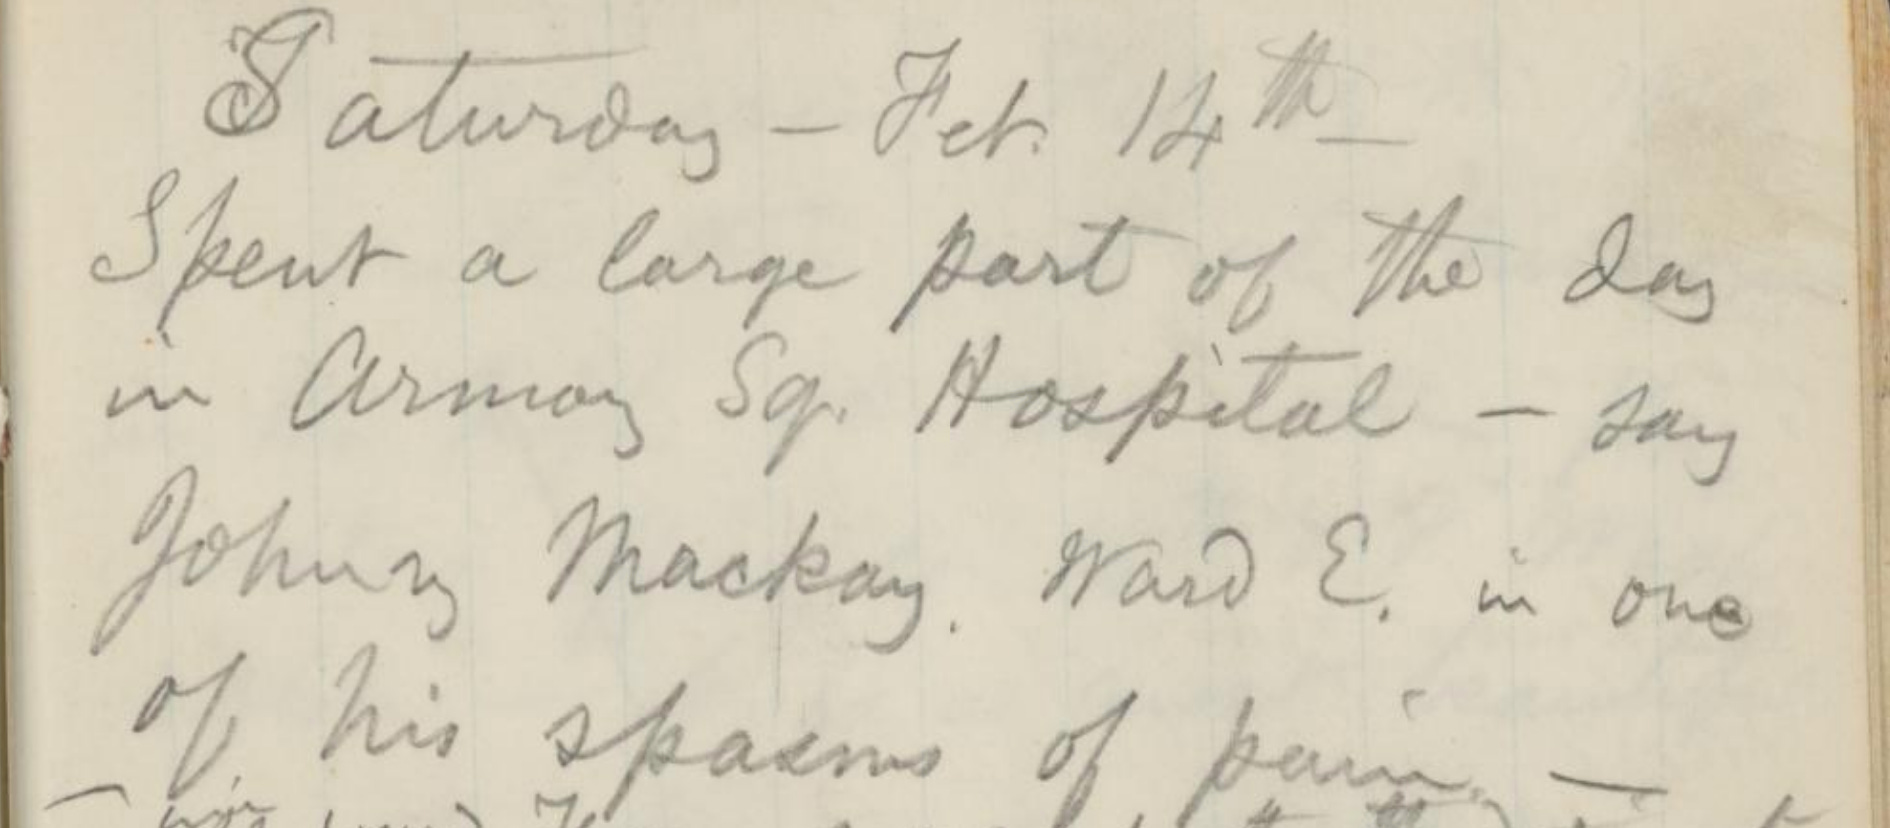 Saturday – Feb. 14th –
Spent a large part of the day
in Armory Sq. Hospital – say
Johnny Mackay. Ward E. in one
of his spasms of pain. –